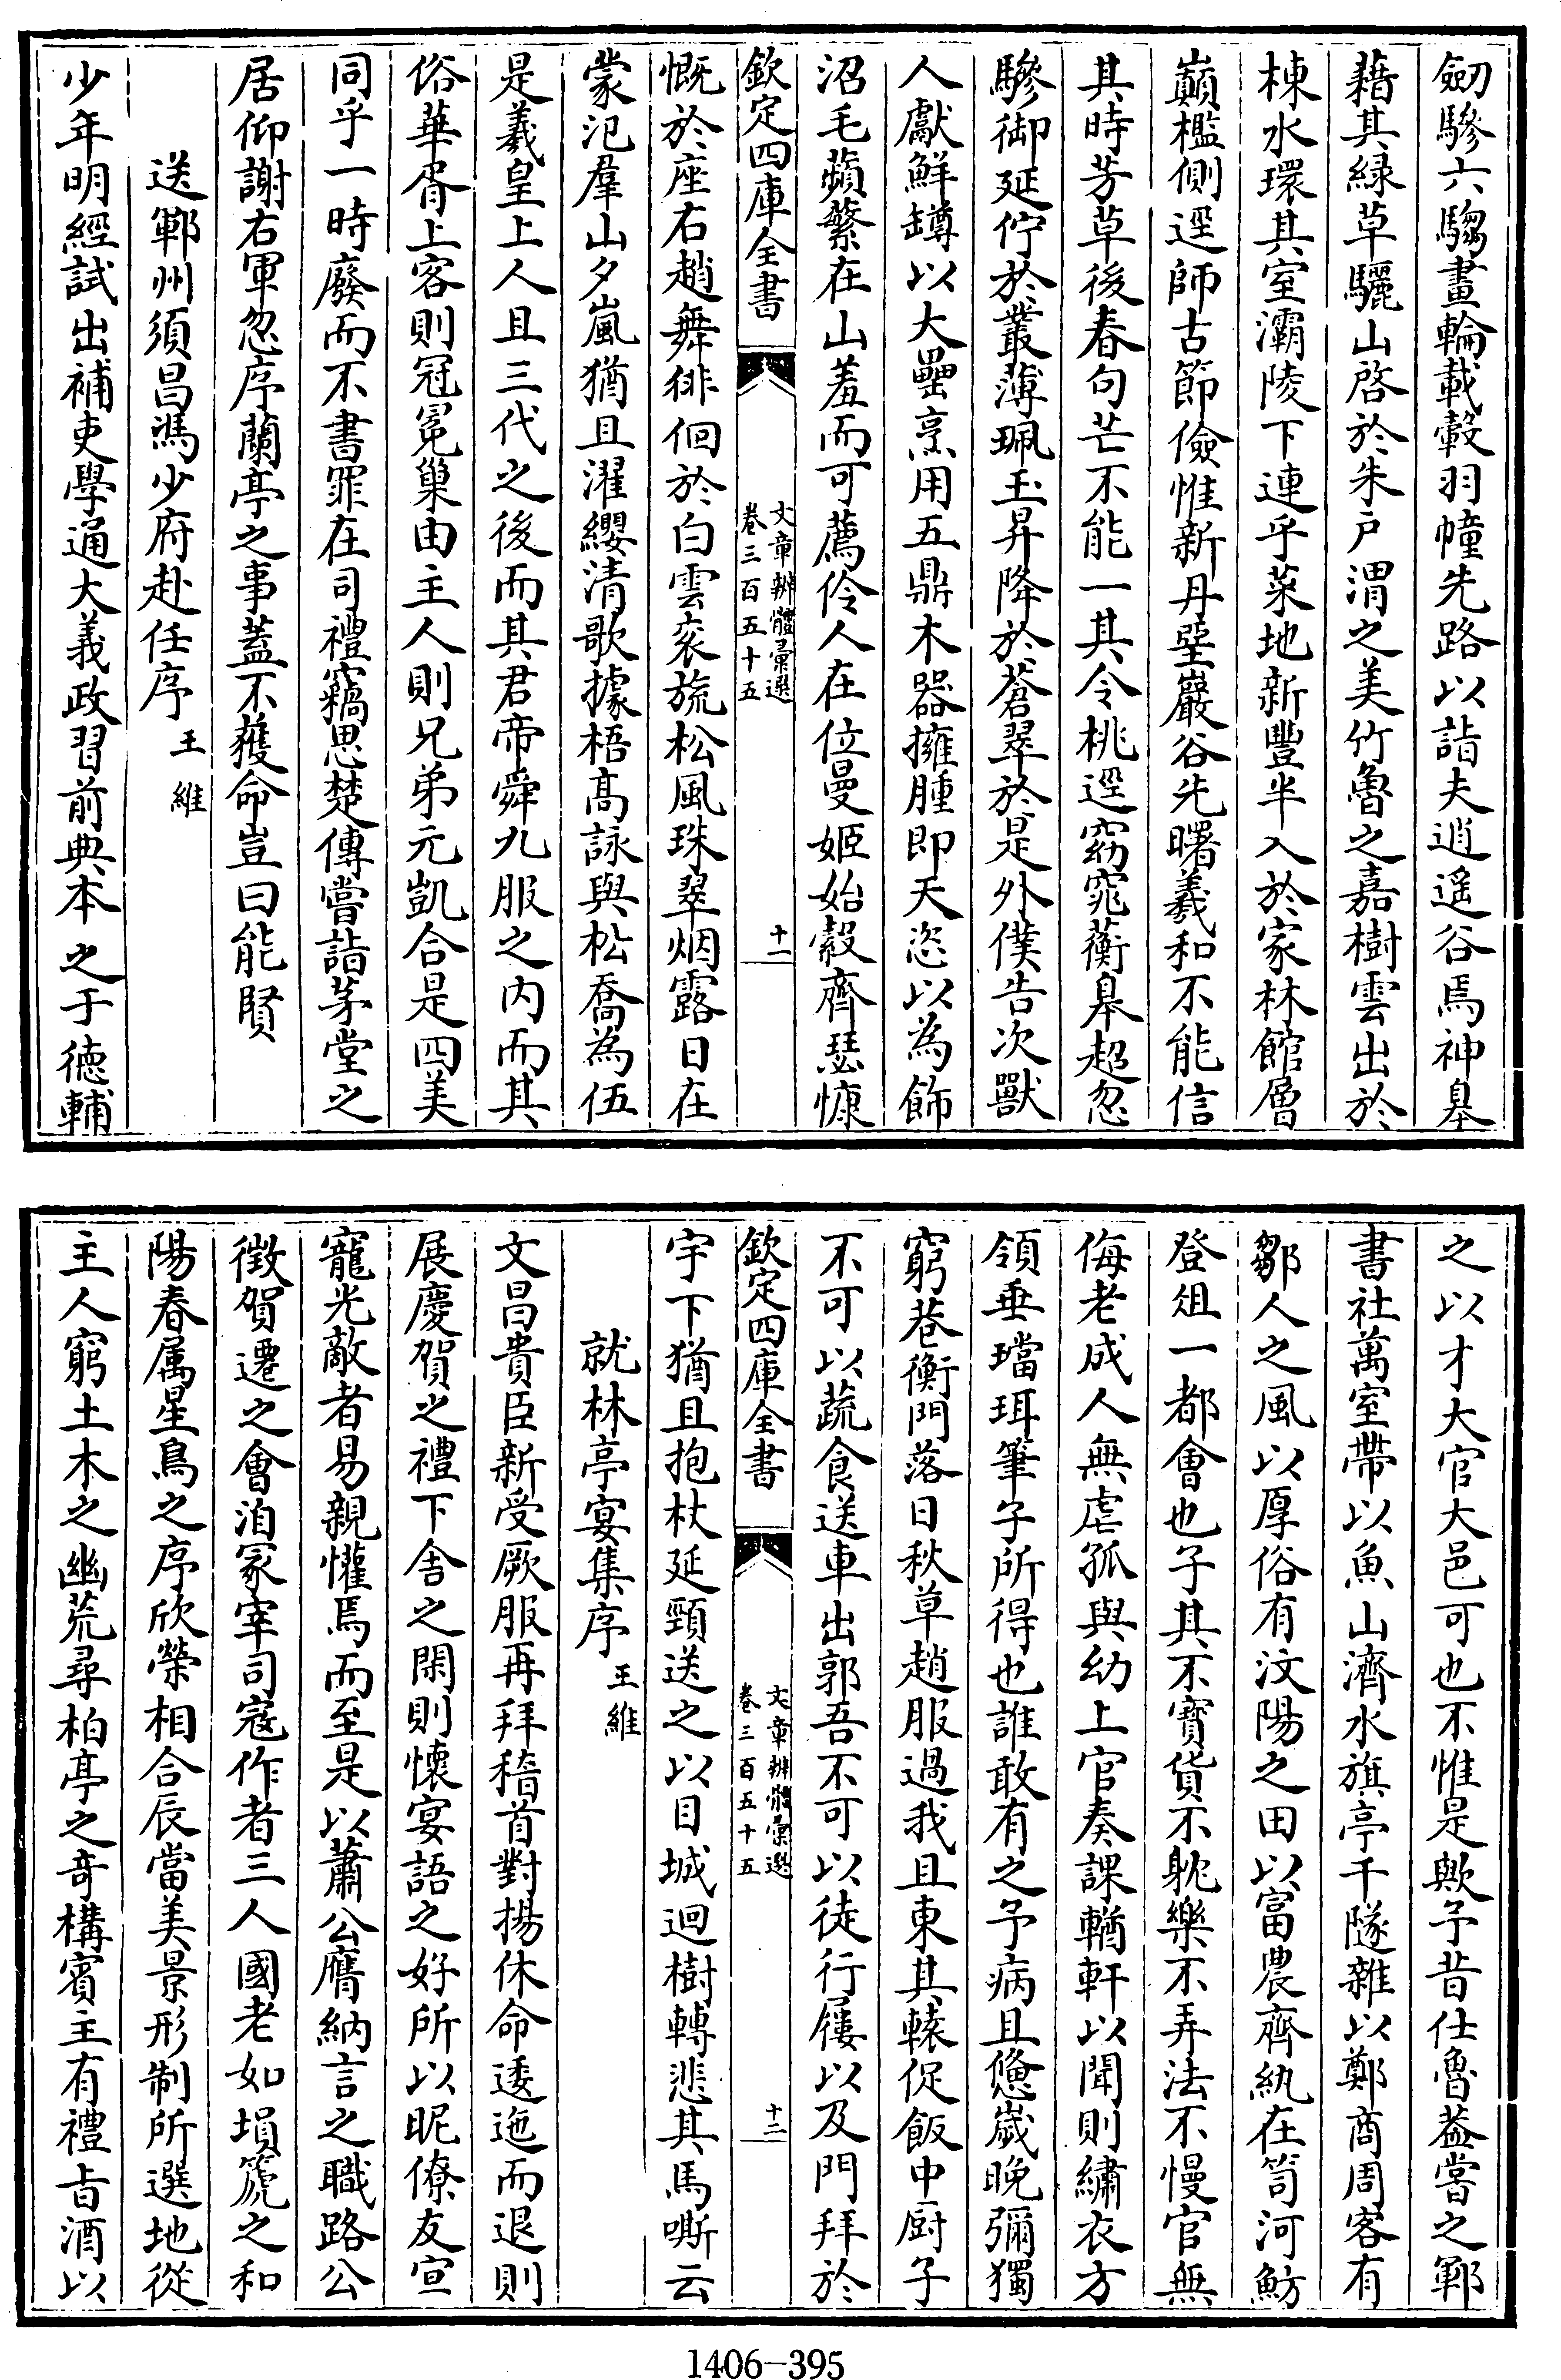 劒驂六騶畫輪載轂羽幢先路以詣夫逍遙谷焉神皐
藉其緑草驪山啓於朱戸渭之美竹魯之嘉樹雲出於
棟水環其室灞陵下連乎菜地新豐半入於家林館層
巔檻側逕師古節儉惟新丹堊巖谷先曙羲和不能信
其時芳草後春句芒不能一其令桃逕窈窕蘅皐超忽
驂御延佇於叢薄珮玉昇降於蒼翠於是外僕告次獸
人獻鮮罇以大罍烹用五鼎木器擁腫即天恣以為飾
沼毛蘋蘩在山羞而可薦伶人在位曼姬始縠齊瑟慷
欽定四庫全書
文章辨體彙選
卷三百五十五
十一
慨於座右趙舞徘徊於白雲衮旒松風珠翠烟露日在
蒙汜羣山夕嵐猶且濯纓清歌據梧高詠與松喬為伍
是羲皇上人且三代之後而其君帝舜九服之内而其
俗華胥上客則冠冕巢由主人則兄弟元凱合是四美
同乎一時廢而不書罪在司禮竊思楚傳嘗詣茅堂之
居仰謝右軍忽序蘭亭之事蓋不獲命豈曰能賢
送鄆州須昌馮少府赴任序
王維
少年明經試出補吏學通大義政習前典本之于德輔
之以才大官大邑可也不惟是歟予昔仕魯葢嘗之鄆
書社萬室帶以魚山濟水旗亭千隧雜以鄭商周客有
鄒人之風以厚俗有汶陽之田以富農齊紈在笥河魴
登俎一都會也子其不寳貨不躭樂不弄法不慢官無
侮老成人無虐孤與幼上官奏課輶軒以聞則繡衣方
領垂璫珥筆子所得也誰敢有之予病且憊歲晚彌獨
窮巷衡門落日秋草趙服過我且東其轅促飯中厨子
不可以蔬食送車出郭吾不可以徒行屨以及門拜於
欽定四庫全書
文章辨體彙選
卷三百五十五
十二
宇下猶且抱杖延頸送之以目城迴樹轉悲其馬嘶云
就林亭宴集序
王維
文昌貴臣新受厥服再拜稽首對揚休命逶迤而退則
展慶賀之禮下舍之閑則懷宴語之好所以昵僚友宣
寵光敵者易親懽焉而至是以蕭公膺納言之職路公
徴賀遷之會洎冢宰司寇作者三人國老如塤篪之和
陽春属星鳥之序欣榮相合辰當美景形制所選地從
主人窮土木之幽荒尋柏亭之奇構賓主有禮旨酒以
1406-395